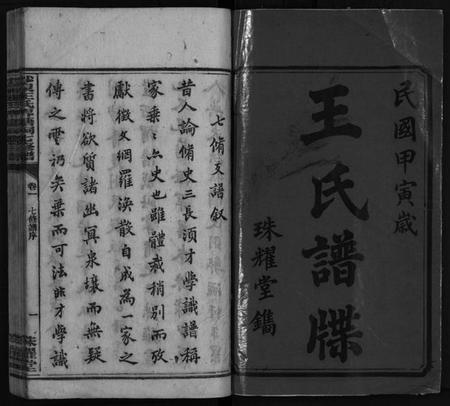 民國甲寅歲
王氏譜牒
珠耀堂鐫
七脩支譜叙
昔人論脩史三長須才學識譜稱
家乘乘亦史也雖體裁稍別而攷
獻徵文網羅渙散自成為一家之
書將欲質諸幽冥泉壤而無疑
傳之雲礽矣葉而可法非才學識
卷
七脩譜序
一
珠耀堂